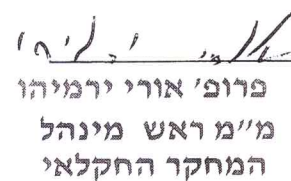 פרופ' אורי ירמיהו
מ"מ ראש מינהל
המחקר החקלאי